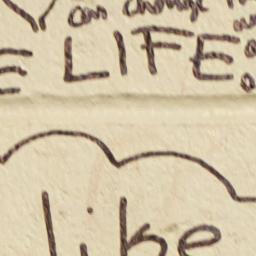 can change
LIFE
like